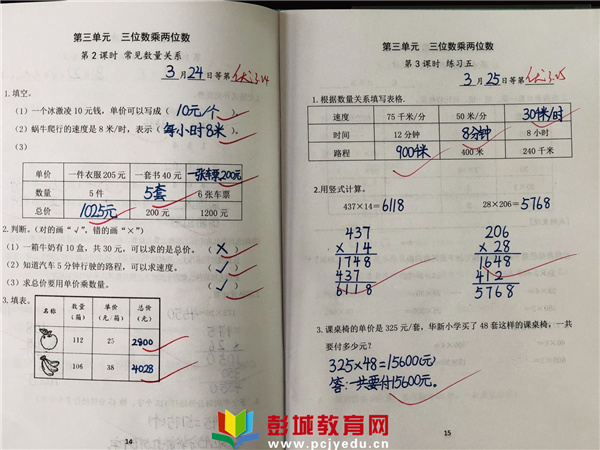 第三单元 三位数乘两位数
第2课时 常见数量关系
3月24日等第优 3.24
1.填空。
(1)一个冰激凌10元钱，单价可以写成（10元/个）。
(2)蜗牛爬行的速度是8米/时，表示（每小时8米）。
(3)
单价 一件衣服205元 一套书40元 一张车票200元
数量 5件 5套 6张车票
总价 1025元 200元 1200元
2.判断。(对的画“√”，错的画“×”)
(1)一箱牛奶有10盒，共30元，可以求的是总价。（×）
(2)知道汽车5分钟行驶的路程，可以求速度。（√）
(3)求总价要用单价乘数量。（√）
3.填表。
名称 数量（箱） 单价（元/箱） 总价（元）
112 25 2800
106 38 4028
14
第三单元 三位数乘两位数
第3课时 练习五
3月25日等第优 3.25
1.根据数量关系填写表格.
速度 75千米/分 50米/分 30千米/时
时间 12分钟 8分钟 8小时
路程 900千米 400米 240千米
2.用竖式计算。
437×14=6118 28×206=5768
437 206
×14 ×28
1748 1648
437 412
6118 5768
3.课桌椅的单价是325元/套，华新小学买了48套这样的课桌椅，一共
要付多少元？
325×48=15600(元)
答:一共要付15600元。
15
彭城教育网
www.pcjyedu.cn